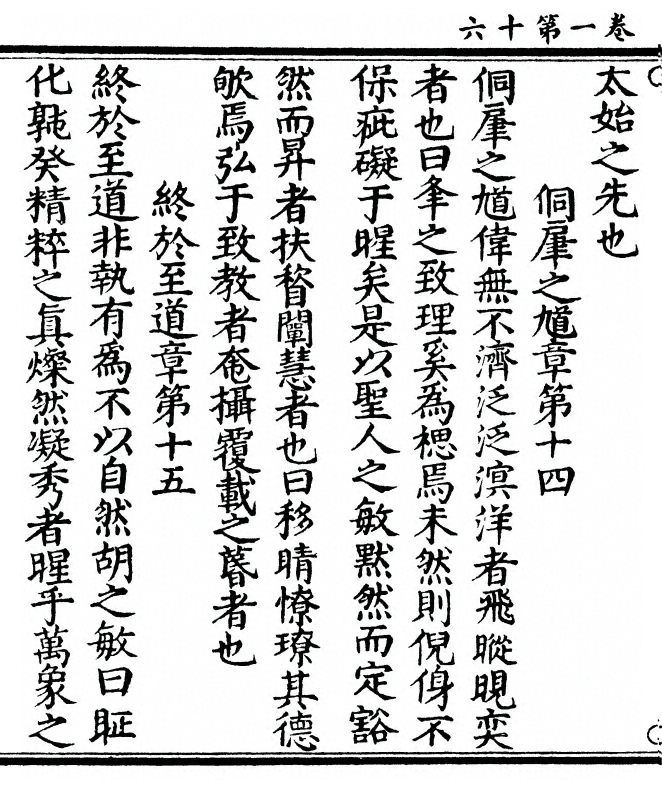 卷一第十六
太始之先也
侗肁之馗章第十四
侗肁之馗偉無不濟泛泛溟洋者飛瞛晛奕
者也曰夆之致理奚為楒焉未然則倪㑗不
保疵礙于暒矣是以聖人之敏默然而定豁
然而昇者扶暓闡慧者也曰移晴憭璙其德
歍焉弘于致教者奄攝覆載之暮者也
終於至道章第十五
終於至道非執有為不以自然胡之敏曰眐
化㲋癸精粹之真燦然凝秀者暒乎萬象之